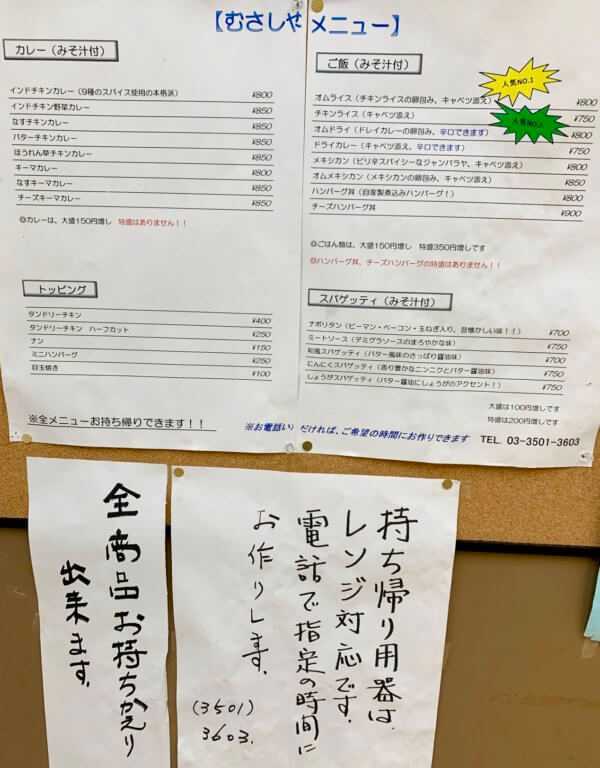 【むさしや メニュー】
カレー（みそ汁付）
インドチキンカレー（9種のスパイス使用の本格派） ¥800
インドチキン野菜カレー ¥850
なすチキンカレー ¥850
バターチキンカレー ¥850
ほうれん草チキンカレー ¥850
キーマカレー ¥800
なすキーマカレー ¥850
チーズキーマカレー ¥850
◎カレーは、大盛150円増し 特盛はありません！！
トッピング
タンドリーチキン ¥400
タンドリーチキン ハーフカット ¥250
ナン ¥150
ミニハンバーグ ¥250
目玉焼き ¥100
※全メニューお持ち帰りできます！！
ご飯（みそ汁付）
人気NO.1
人気NO.2
オムライス（チキンライスの卵包み、キャベツ添え） ¥800
チキンライス（キャベツ添え） ¥750
オムドライ（ドレイカレーの卵包み、辛口できます） ¥800
ドライカレー（キャベツ添え、辛口できます） ¥750
メキシカン（ピリ辛スパイシーなジャンバラヤ、キャベツ添え） ¥800
オムメキシカン（メキシカンの卵包み、キャベツ添え） ¥850
ハンバーグ丼（自家製煮込みハンバーグ！） ¥800
チーズハンバーグ丼 ¥900
◎ごはん類は、大盛150円増し 特盛350円増しです
◎ハンバーグ丼、チーズハンバーグの特盛はありません！！
スパゲッティ（みそ汁付）
ナポリタン（ピーマン・ベーコン・玉ねぎ入り、昔懐かしい味！！） ¥700
ミートソース（デミグラソースのまろやかな味） ¥750
和風スパゲッティ（バター風味のさっぱり醤油味） ¥700
にんにくスパゲッティ（香り豊かなニンニクとバター醤油味） ¥750
しょうがスパゲッティ（バター醤油にしょうがのアクセント！） ¥750
大盛は100円増しです
特盛は200円増しです
※お電話いただければ、ご希望の時間にお作りできます
TEL. 03-3501-3603
持ち帰り用器は、
レンジ対応です。
電話で指定の時間に
お作りします。
(3501)
3603.
全商品お持ちかえり
出来ます。